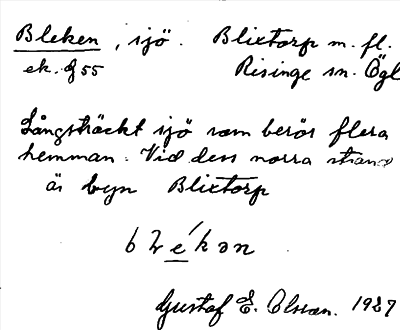 Bleken, sjö. Blixtorp m. fl.
ek. 55 Risinge sn. Ögl
Långsträckt sjö som berör flera
hemman. Vid dess norra strand
är byn Blixtorp
Gustaf E. Olsson. 1927